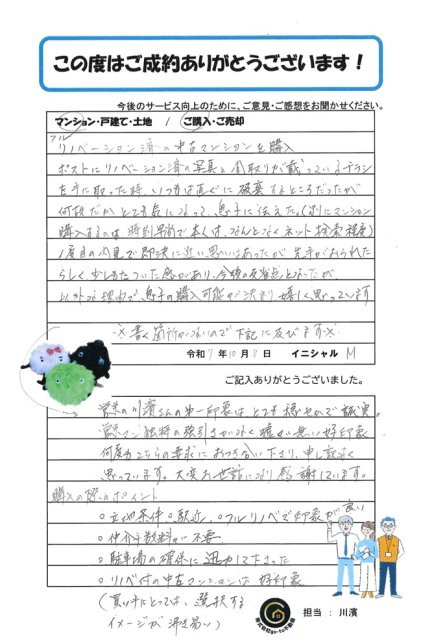 この度はご成約ありがとうございます！
今後のサービス向上のために、ご意見・ご感想をお聞かせください。
マンション・戸建て・土地 / ご購入・ご売却
フル
リノベーション済の中古マンションを購入
ポストにリノベーション済の写真と間取りが載っているチラシ
を手に取った時、いつもは直ぐに破棄するところだったが
何故だかとても気になって、息子に伝えた。(別にマンション
購入するのは時期早尚で本人は、なんとなくネット検索程度)
1度目の内見で即決に近い思いはあったが先手がおられた
らしく少しもたついた感があり、今後の反省点となったが、
以外な理由で息子の購入可能が決まり嬉しく思っています
※書く箇所がないので下記に及びます※
令和7年10月8日 イニシャル M
ご記入ありがとうございました。
営業の川濱さんの第一印象はとても穏やかで誠実。
営業マン独特の強引さがなく嘘が無い好印象
何度もこちらの要求におつきあい下さり、申し訳なく
思っています。大変お世話になり感謝しています。
購入の際のポイント
○立地条件 ○駅近 ○フルリノベで印象が良い
○仲介手数料が不要
○駐車場の確保に迅力して下さった
○リノベ付の中古マンションは好印象
(買い手にとっては、選択する
イメージが湧き易い)
担当：川濱